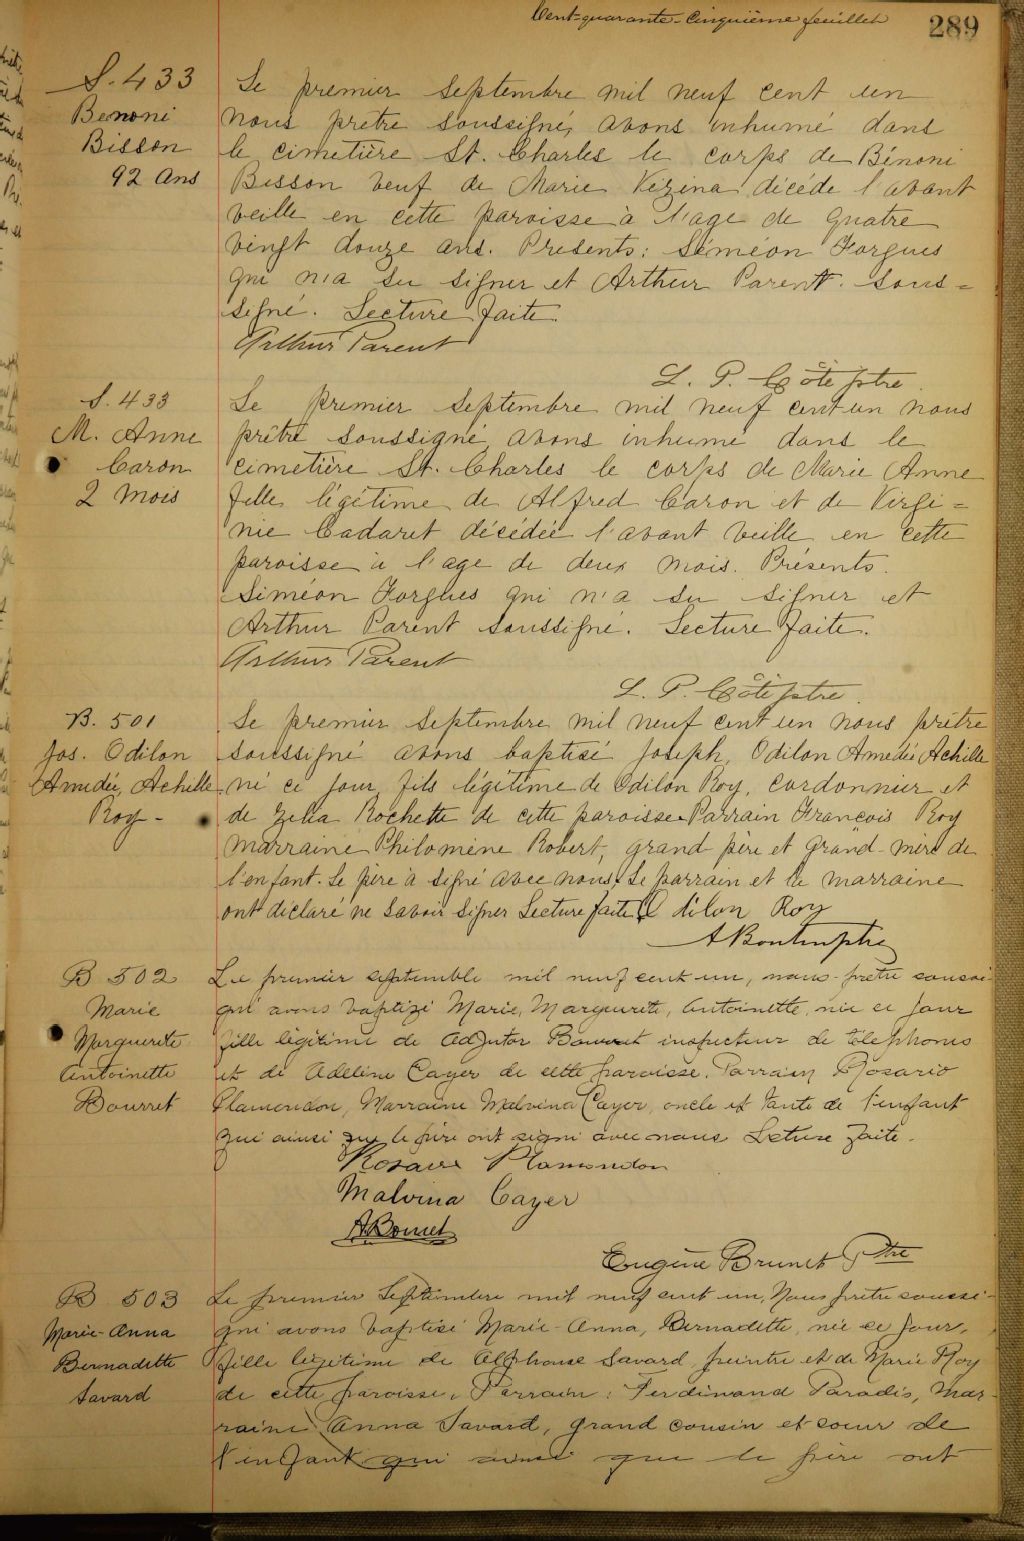 Cent-quarante-cinquième feuillet
289
S. 433
Benoni
Bisson
92 ans
Le premier septembre mil neuf cent un
nous prêtre soussigné, avons inhumé dans
le cimetière St. Charles le corps de Bénoni
Bisson veuf de Marie Vézina décédé l'avant
veille en cette paroisse à l'age de quatre
vingt douze ans. Presents: Siméon Forgues
qui n'a su signer et Arthur Parent sous=
signé. Lecture faite.
Arthur Parent
L. P. Côté ptre.
S. 433
M. Anne
Caron
2 mois
Le premier septembre mil neuf cent un nous
prêtre soussigné, avons inhumé dans le
cimetière St. Charles le corps de Marie Anne
fille légitime de Alfred Caron et de Virgi=
nie Cadaret décédée l'avant veille en cette
paroisse à l'age de deux mois. Présents.
Siméon Forgues qui n'a su signer et
Arthur Parent soussigné. Lecture faite.
Arthur Parent
L. P. Côté ptre.
B. 501
Jos. Odilon
Amedée, Achille
Roy-
Le premier septembre mil neuf cent un nous prêtre
soussigné avons baptisé Joseph, Odilon Amedée Achille
né ce jour fils légitime de Odilon Roy, cordonnier et
de Zelia Rochette de cette paroisse. Parrain François Roy
marraine Philomène Robert, grand père et grand-mère de
l'enfant. Le père a signé avec nous. Le parrain et la marraine
ont déclaré ne savoir signer Lecture faite. Odilon Roy
B 502
Marie
Marguerite
Antoinette
Bourret
Le premier septembre mil neuf cent un, nous-prêtre soussi-
gné avons baptizé Marie, Marguerite, Antoinette, née ce jour
fille légitime de Adjutor Bourret inspecteur de téléphones
et de Adeline Cayer de cette paroisse. Parrain Rosario
Plamondon, Marraine Malvina Cayer, oncle et tante de l'enfant
qui ainsi que le père ont signé avec nous Lecture faite.
Rosario Plamondon
Malvina Cayer
A. Bourret
Eugène Brunet Ptre
B 503
Marie-Anna
Bernadette
Savard
Le premier Septembre mil neuf cent un, Nous prêtre soussi-
gné avons baptisé Marie-Anna, Bernadette, née ce jour,
fille légitime de Alphonse Savard, peintre et de Marie Roy
de cette paroisse. Parrain: Ferdinand Paradis, Mar-
raine Anna Savard, grand cousin et soeur de
l'enfant qui ainsi que le père ont